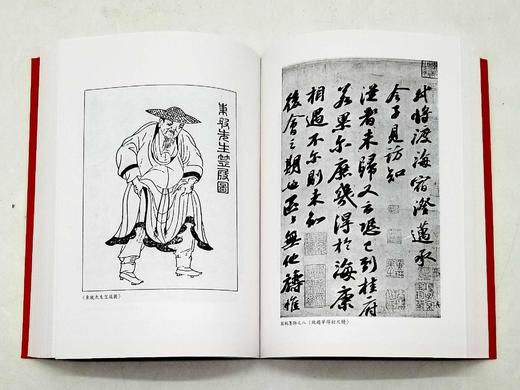 東坡先生笠屐圖
《東坡先生笠屐圖》
軾將渡海宿澄邁承
令子見訪知
從者未歸又云恐已到桂府
若果爾庶幾得於海康
相遇不爾則未知
後會之期也區區無他禱惟
之八 尺牘